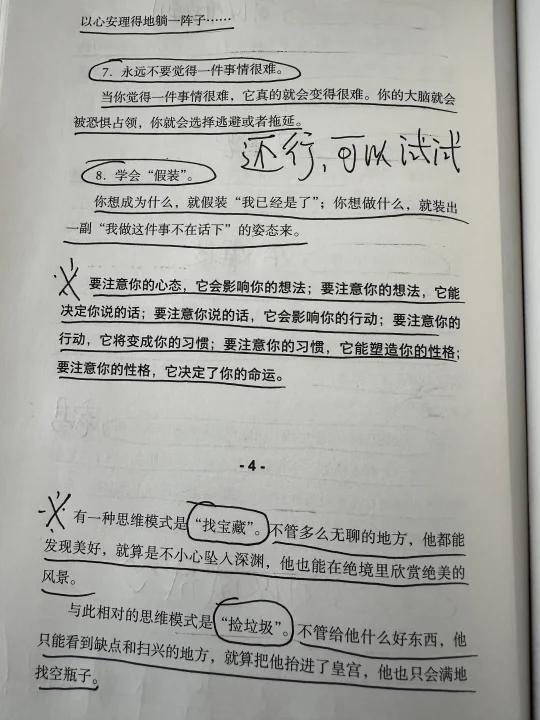 以心安理得地躺一阵子……
7. 永远不要觉得一件事情很难。
当你觉得一件事情很难，它真的就会变得很难。你的大脑就会
被恐惧占领，你就会选择逃避或者拖延。
还行，可以试试
8. 学会“假装”。
你想成为什么，就假装“我已经是了”；你想做什么，就装出
一副“我做这件事不在话下”的姿态来。
要注意你的心态，它会影响你的想法；要注意你的想法，它能
决定你说的话；要注意你说的话，它会影响你的行动；要注意你的
行动，它将变成你的习惯；要注意你的习惯，它能塑造你的性格；
要注意你的性格，它决定了你的命运。
- 4 -
有一种思维模式是“找宝藏”。不管多么无聊的地方，他都能
发现美好，就算是不小心坠入深渊，他也能在绝境里欣赏绝美的
风景。
与此相对的思维模式是“捡垃圾”。不管给他什么好东西，他
只能看到缺点和扫兴的地方，就算把他抬进了皇宫，他也只会满地
找空瓶子。